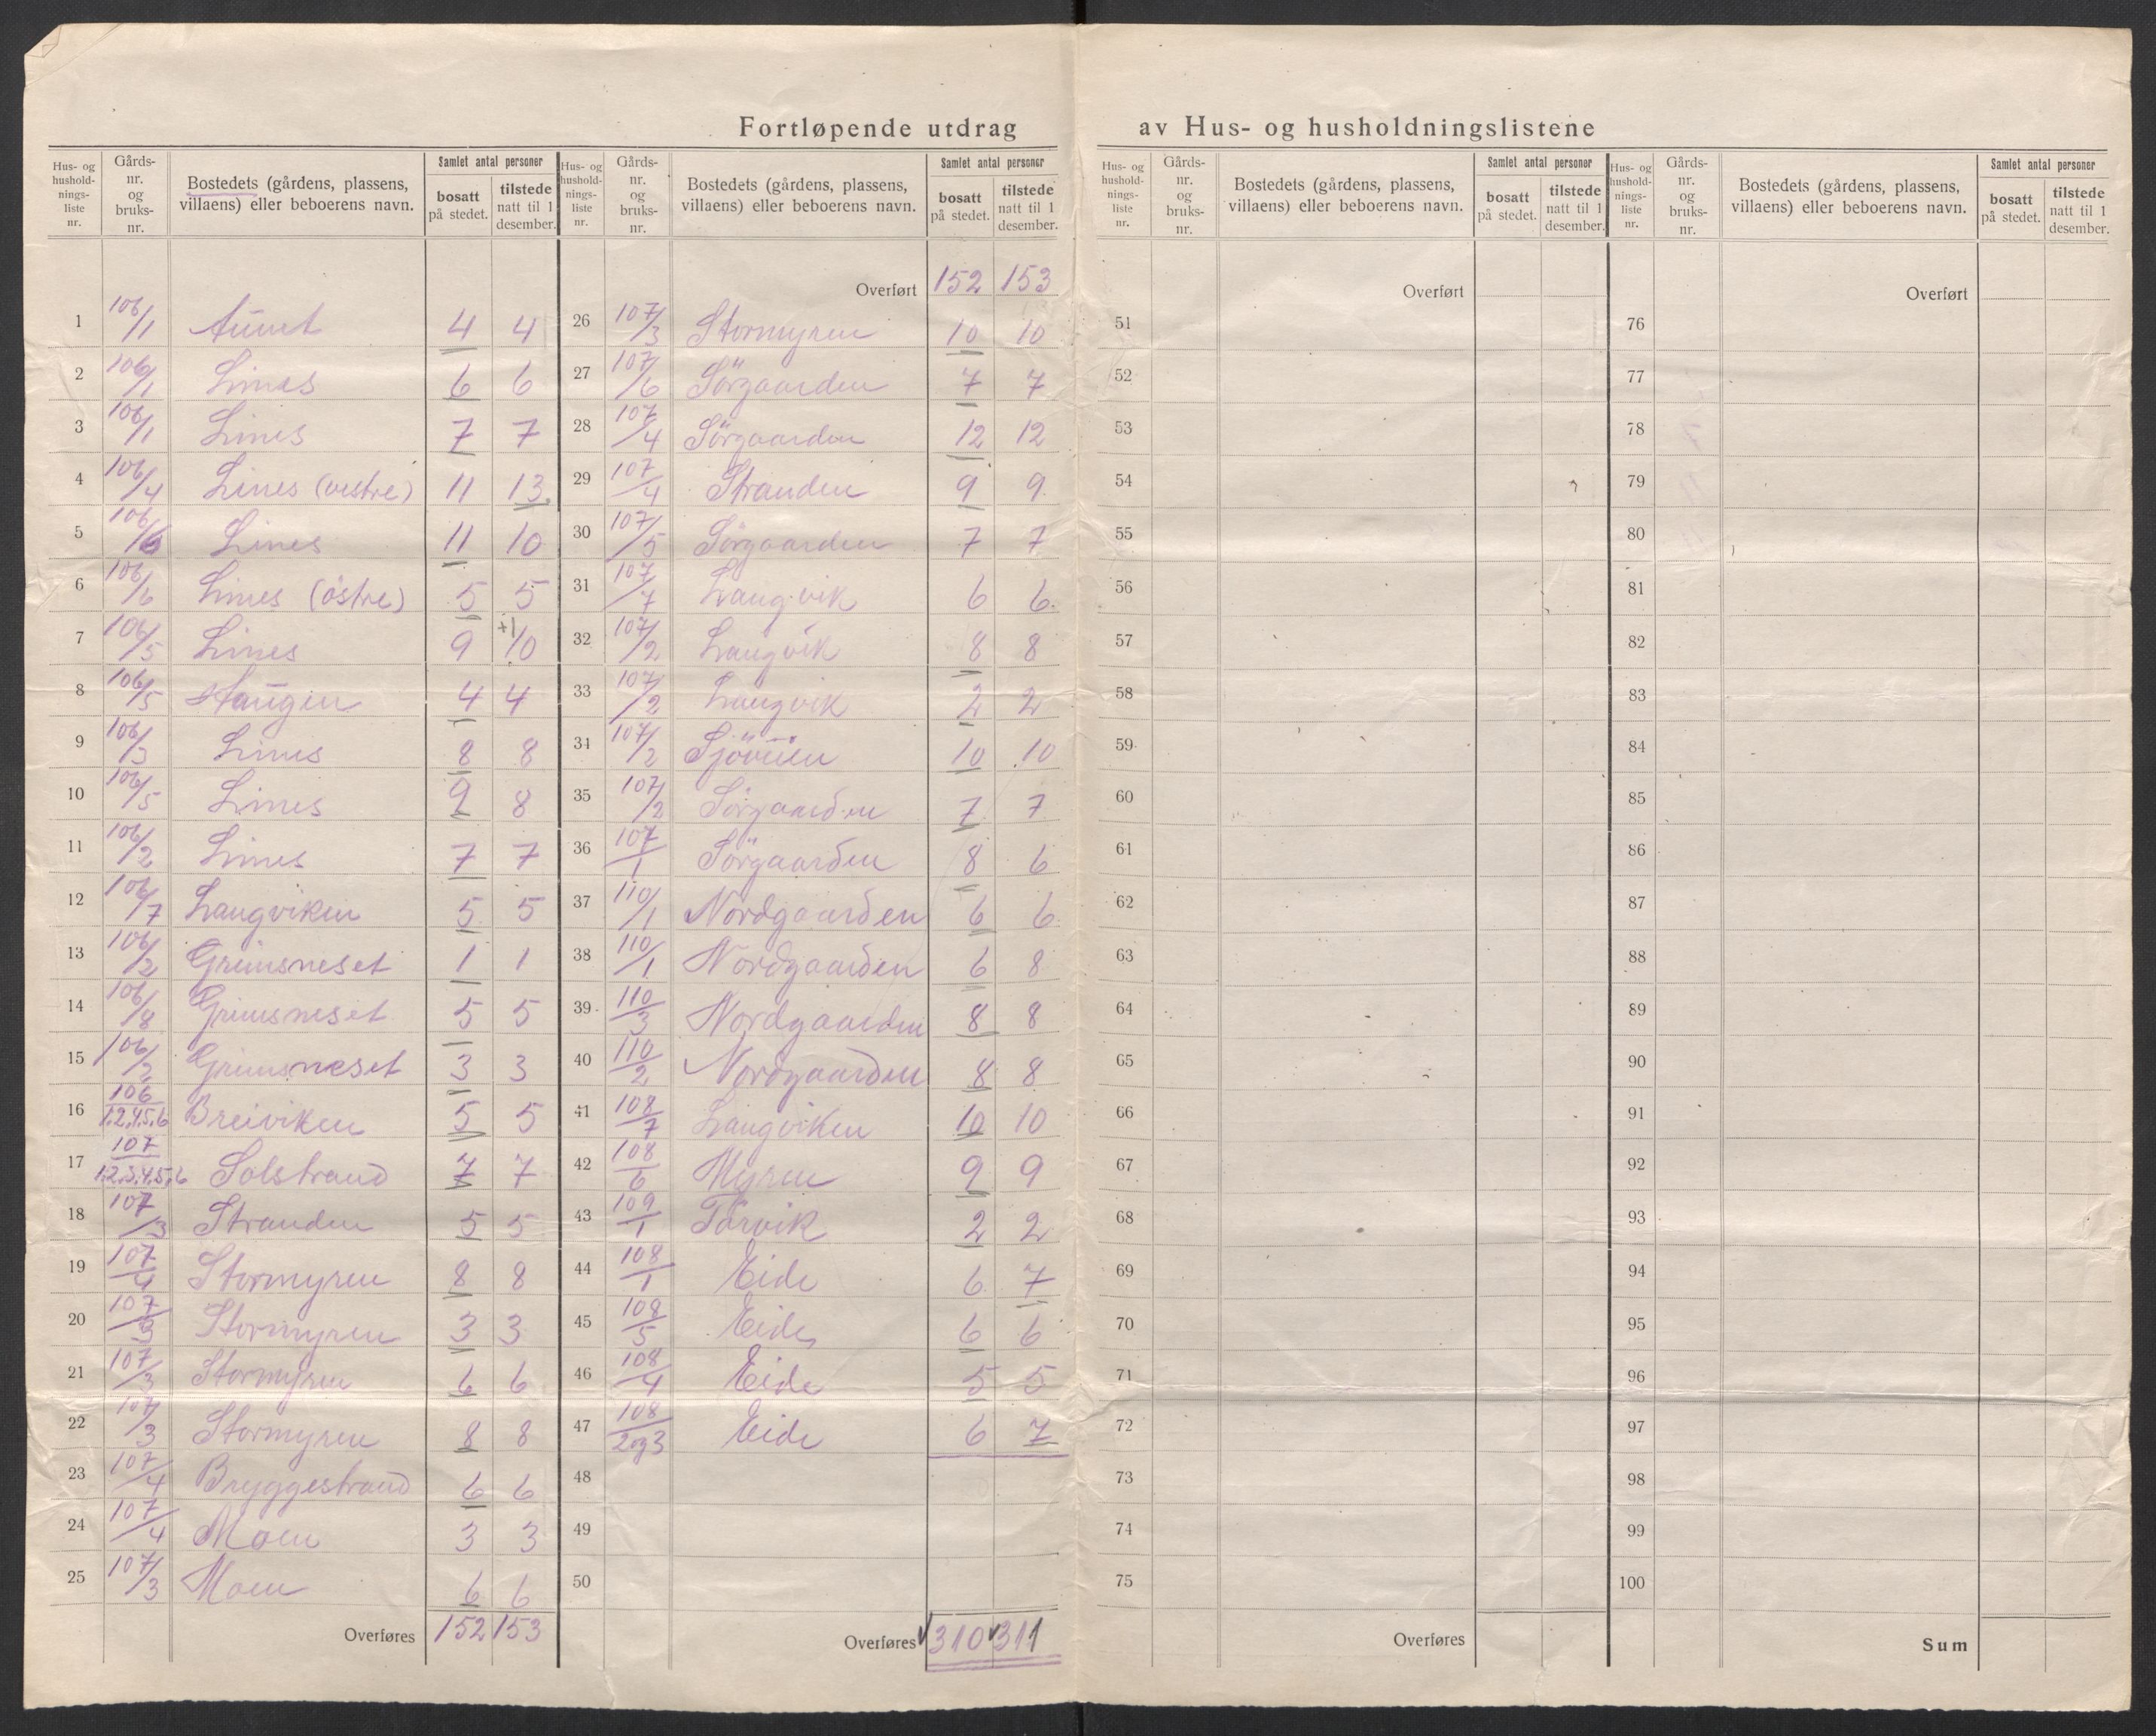 Fortløpende utdrag av Hus- og husholdningslistene
Hus- og hushold- nings- liste nr. Gårds- nr. og bruks- nr. Bostedets (gårdens, plassens, villaens) eller beboerens navn. Samlet antal personer bosatt på stedet. tilstede natt til 1 desember.
1 106/1 Aunet 4 4
2 106/1 Lines 6 6
3 106/1 Lines 7 7
4 106/4 Lines (vestre) 11 13
5 106/6 Lines 11 10
6 106/6 Lines (østre) 5 5
7 106/5 Lines 9 +1 10
8 106/5 Haugen 4 4
9 106/3 Lines 8 8
10 106/5 Lines 9 8
11 106/2 Lines 7 7
12 106/7 Langviken 5 5
13 106/2 Grimsneset 1 1
14 106/8 Grimsneset 5 5
15 106/2 Grimsneset 3 3
16 106/1.2.4.5.6 Breiviken 5 5
17 107/1.2.3.4.5.6 Solstrand 7 7
18 107/3 Stranden 5 5
19 107/4 Stormyren 8 8
20 107/3 Stormyren 3 3
21 107/3 Stormyren 6 6
22 107/3 Stormyren 8 8
23 107/4 Bryggestrand 6 6
24 107/4 Moen 3 3
25 107/3 Moen 6 6
Overføres 152 153
Hus- og hushold- nings- liste nr. Gårds- nr. og bruks- nr. Bostedets (gårdens, plassens, villaens) eller beboerens navn. Samlet antal personer bosatt på stedet. tilstede natt til 1 desember.
Overført 152 153
26 107/3 Stormyren 10 10
27 107/6 Sörgaarden 7 7
28 107/4 Sörgaarden 12 12
29 107/4 Stranden 9 9
30 107/5 Sörgaarden 7 7
31 107/7 Langvik 6 6
32 107/2 Langvik 8 8
33 107/2 Langvik 2 2
34 107/2 10 10
35 107/2 Sörgaarden 7 7
36 107/1 Sörgaarden 8 6
37 110/1 Nordgaarden 6 6
38 110/1 Nordgaarden 6 8
39 110/3 Nordgaarden 8 8
40 110/2 Nordgaarden 8 8
41 108/7 Langviken 10 10
42 108/6 Myren 9 9
43 109/1 Torvik 2 2
44 108/1 Eide 6 7
45 108/5 Eide 6 6
46 108/4 Eide 5 5
47 108/2og3 Eide 6 7
48
49
50
Overføres 310 311
Hus- og hushold- nings- liste nr. Gårds- nr. og bruks- nr. Bostedets (gårdens, plassens, villaens) eller beboerens navn. Samlet antal personer bosatt på stedet. tilstede natt til 1 desember.
Overført
51
52
53
54
55
56
57
58
59
60
61
62
63
64
65
66
67
68
69
70
71
72
73
74
75
Overføres
Hus- og hushold- nings- liste nr. Gårds- nr. og bruks- nr. Bostedets (gårdens, plassens, villaens) eller beboerens navn. Samlet antal personer bosatt på stedet. tilstede natt til 1 desember.
Overført
76
77
78
79
80
81
82
83
84
85
86
87
88
89
90
91
92
93
94
95
96
97
98
99
100
Sum